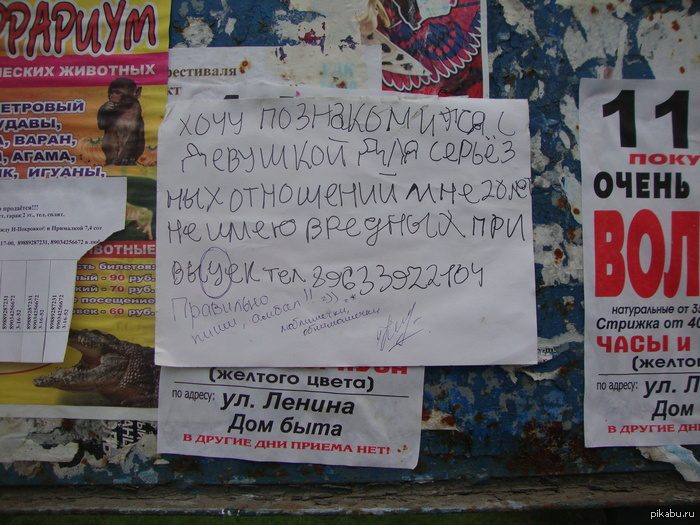 РРАРИУМ
ЧЕСКИХ ЖИВОТНЫХ
ЕТРОВЫЙ
УДАВЫ,
А, ВАРАН,
А, АГАМА,
ИГУАНЫ,
продается!!!
гараж 2 эт., тел. сплит.
7,4 сот
89889287231, 89034256672
89889287231
89034256672
3-16-52
ВОТНЫЕ
ость билетов:
ый - 90 руб.
кий - 70 руб.
е посещение
овек - 60 руб.
фестиваля
ХОЧУ ПОЗНАКОМИТСЯ С
ДЕВУШКОЙ ДЛЯ СЕРЬЁЗ
НЫХ ОТНОШЕНИЙ МНЕ 20 ЛЕТ
НЕ ИМЕЮ ВРЕДНЫХ ПРИ
ВЫУЕК ТЕЛ 89633922104
Правильно
пиши, амбал!! =)))
люблишечки,
обнимашечки
(желтого цвета)
по адресу: ул. Ленина
Дом быта
В ДРУГИЕ ДНИ ПРИЕМА НЕТ!
11
ПОКУ
ОЧЕНЬ
ВОЛ
натуральные от 35
Стрижка от 40
ЧАСЫ и
(желтого
по адресу: ул. Л
Дом
В ДРУГИЕ ДНИ
pikabu.ru